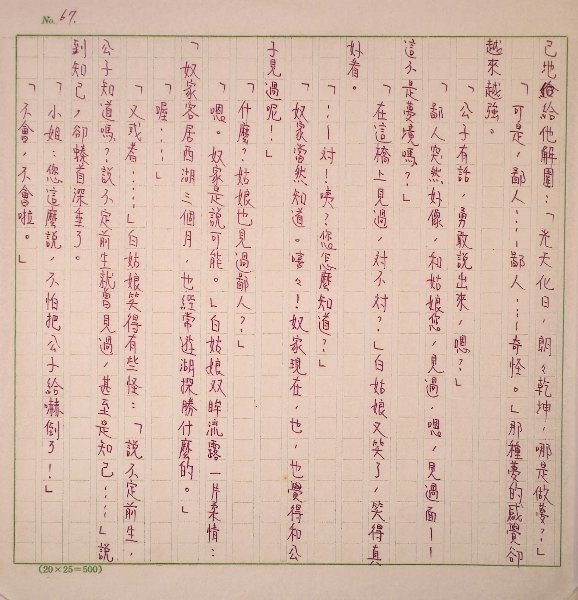 No. 67.
己地給給他解圍：「光天化日，朗々乾坤，哪是做夢？」
「可是，鄙人⋯⋯鄙人⋯⋯奇怪。」那種夢的感覺卻
越來越強。
「公子有話，勇敢說出來，嗯？」
「鄙人突然好像，和姑娘您，見過，嗯，見過面——
這不是夢境嗎？」
「在這橋上見過，對不對？」白姑娘又笑了，笑得真
好看。
「⋯⋯對！咦？您怎麼知道？」
「奴家當然知道。嘻々！奴家現在，也，也覺得和公
子見過呢！」
「什麼？姑娘也見過鄙人？」
「嗯。奴家是說可能。」白姑娘双眸流露一片柔情：
「奴家客居西湖三個月，也經常遊湖探勝什麼的。」
「喔⋯⋯」
「又或者⋯⋯」白姑娘笑得有些怪：「說不定前生，
公子知道嗎？說不定前生就曾見過，甚至是知己⋯⋯」說
到知己，卻螓首深垂了。
「小姐：您這麼說，不怕把公子給嚇倒了！」
「不會，不會啦。」
(20×25=500)